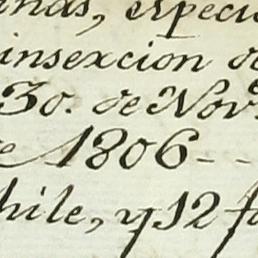 anas, especi
insexcion de
30. de Nov.ᵉ
e 1806 - -
hile, y 12 f